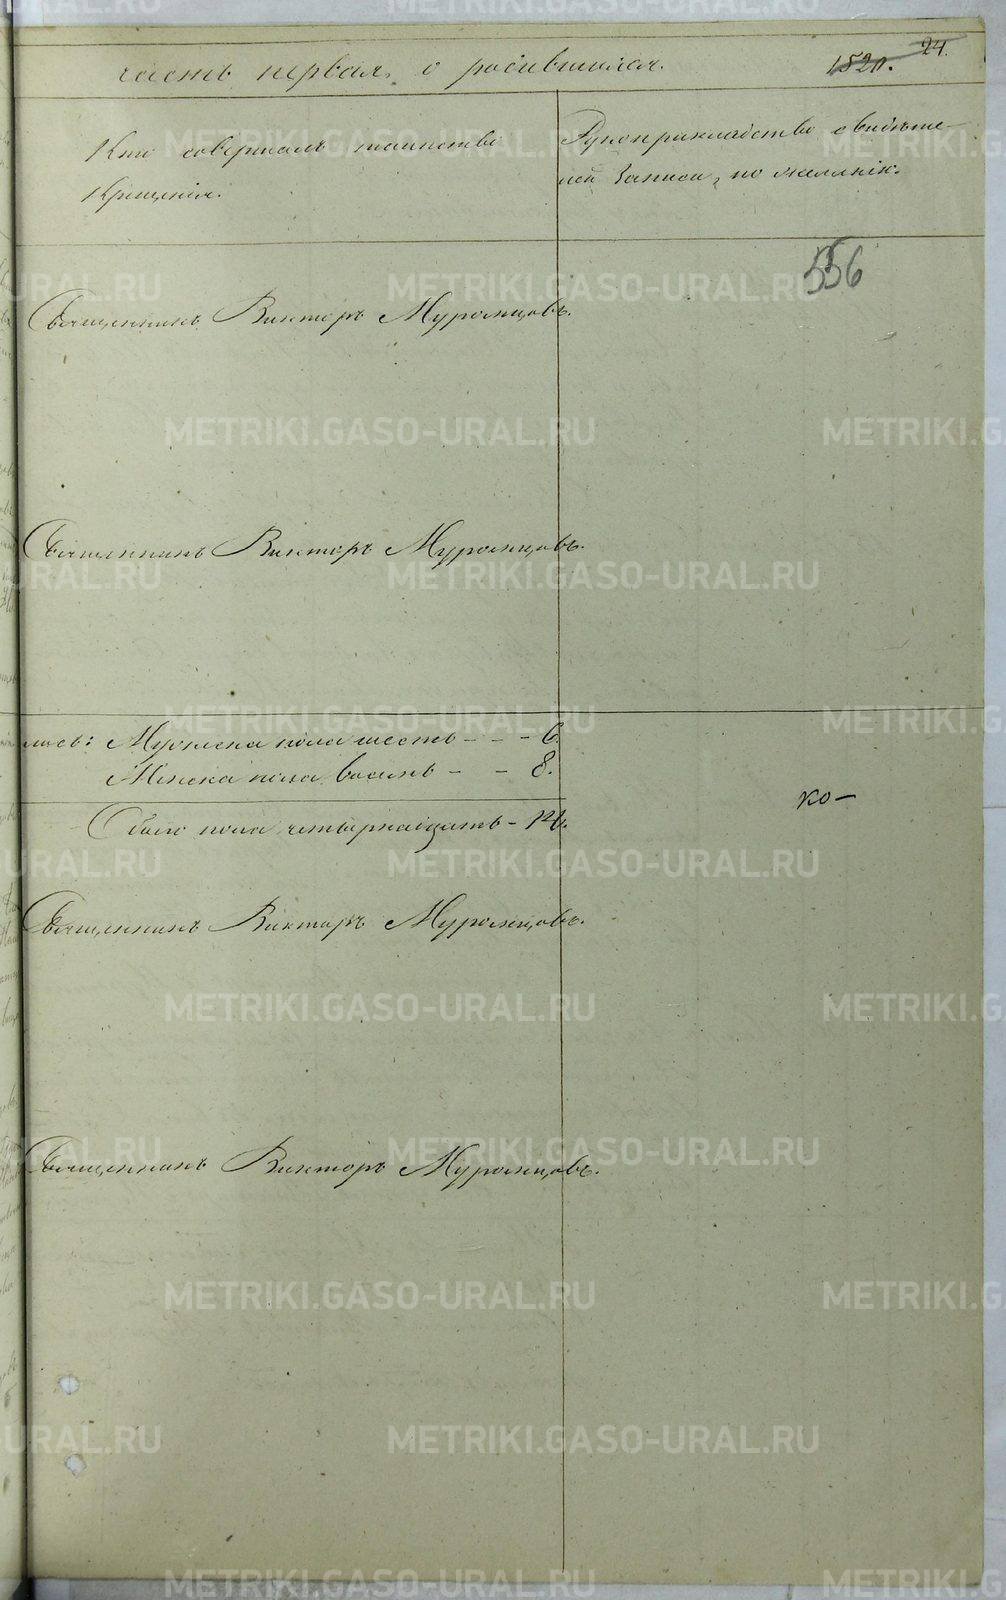 24.
часть первая, о родившихся. 1520.
Кто совершалъ таинство
Крещенія.
Рукоприкладство свидѣте-
лей записи, по желанію.
556
Священникъ Викторъ Муромцовъ.
Священникъ Викторъ Муромцовъ.
лись: Мужеска пола шесть - - - 6.
Женска пола восемь - - 8.
Обоего пола четырнадцать - 14.
ко-
Священникъ Викторъ Муромцовъ.
Священникъ Викторъ Муромцовъ.
METRIKI.GASO-URAL.RU